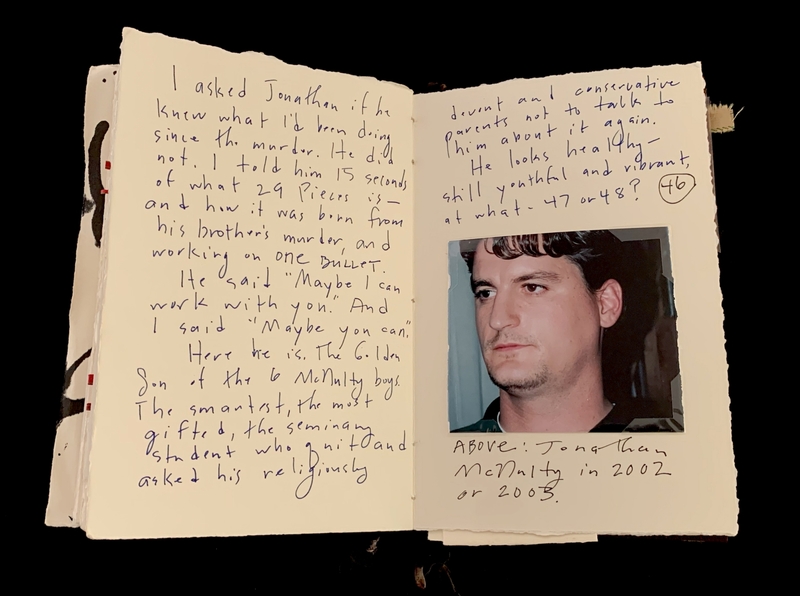 I asked Jonathan if he
knew what I'd been doing
since the murder. He did
not. I told him 15 seconds
of what 29 Pieces is—
and how it was born from
his brother's murder, and
working on ONE BULLET.
He said "Maybe I can
work with you." And
I said "Maybe you can."
Here he is. The Golden
Son of the 6 McNulty boys.
The smartest, the most
gifted, the seminary
student who quit and
asked his religiously
devout and conservative
parents not to talk to
him about it again.
He looks healthy—
still youthful and vibrant,
at what - 47 or 48? 46
ABOVE: Jonathan
McNulty in 2002
or 2003.